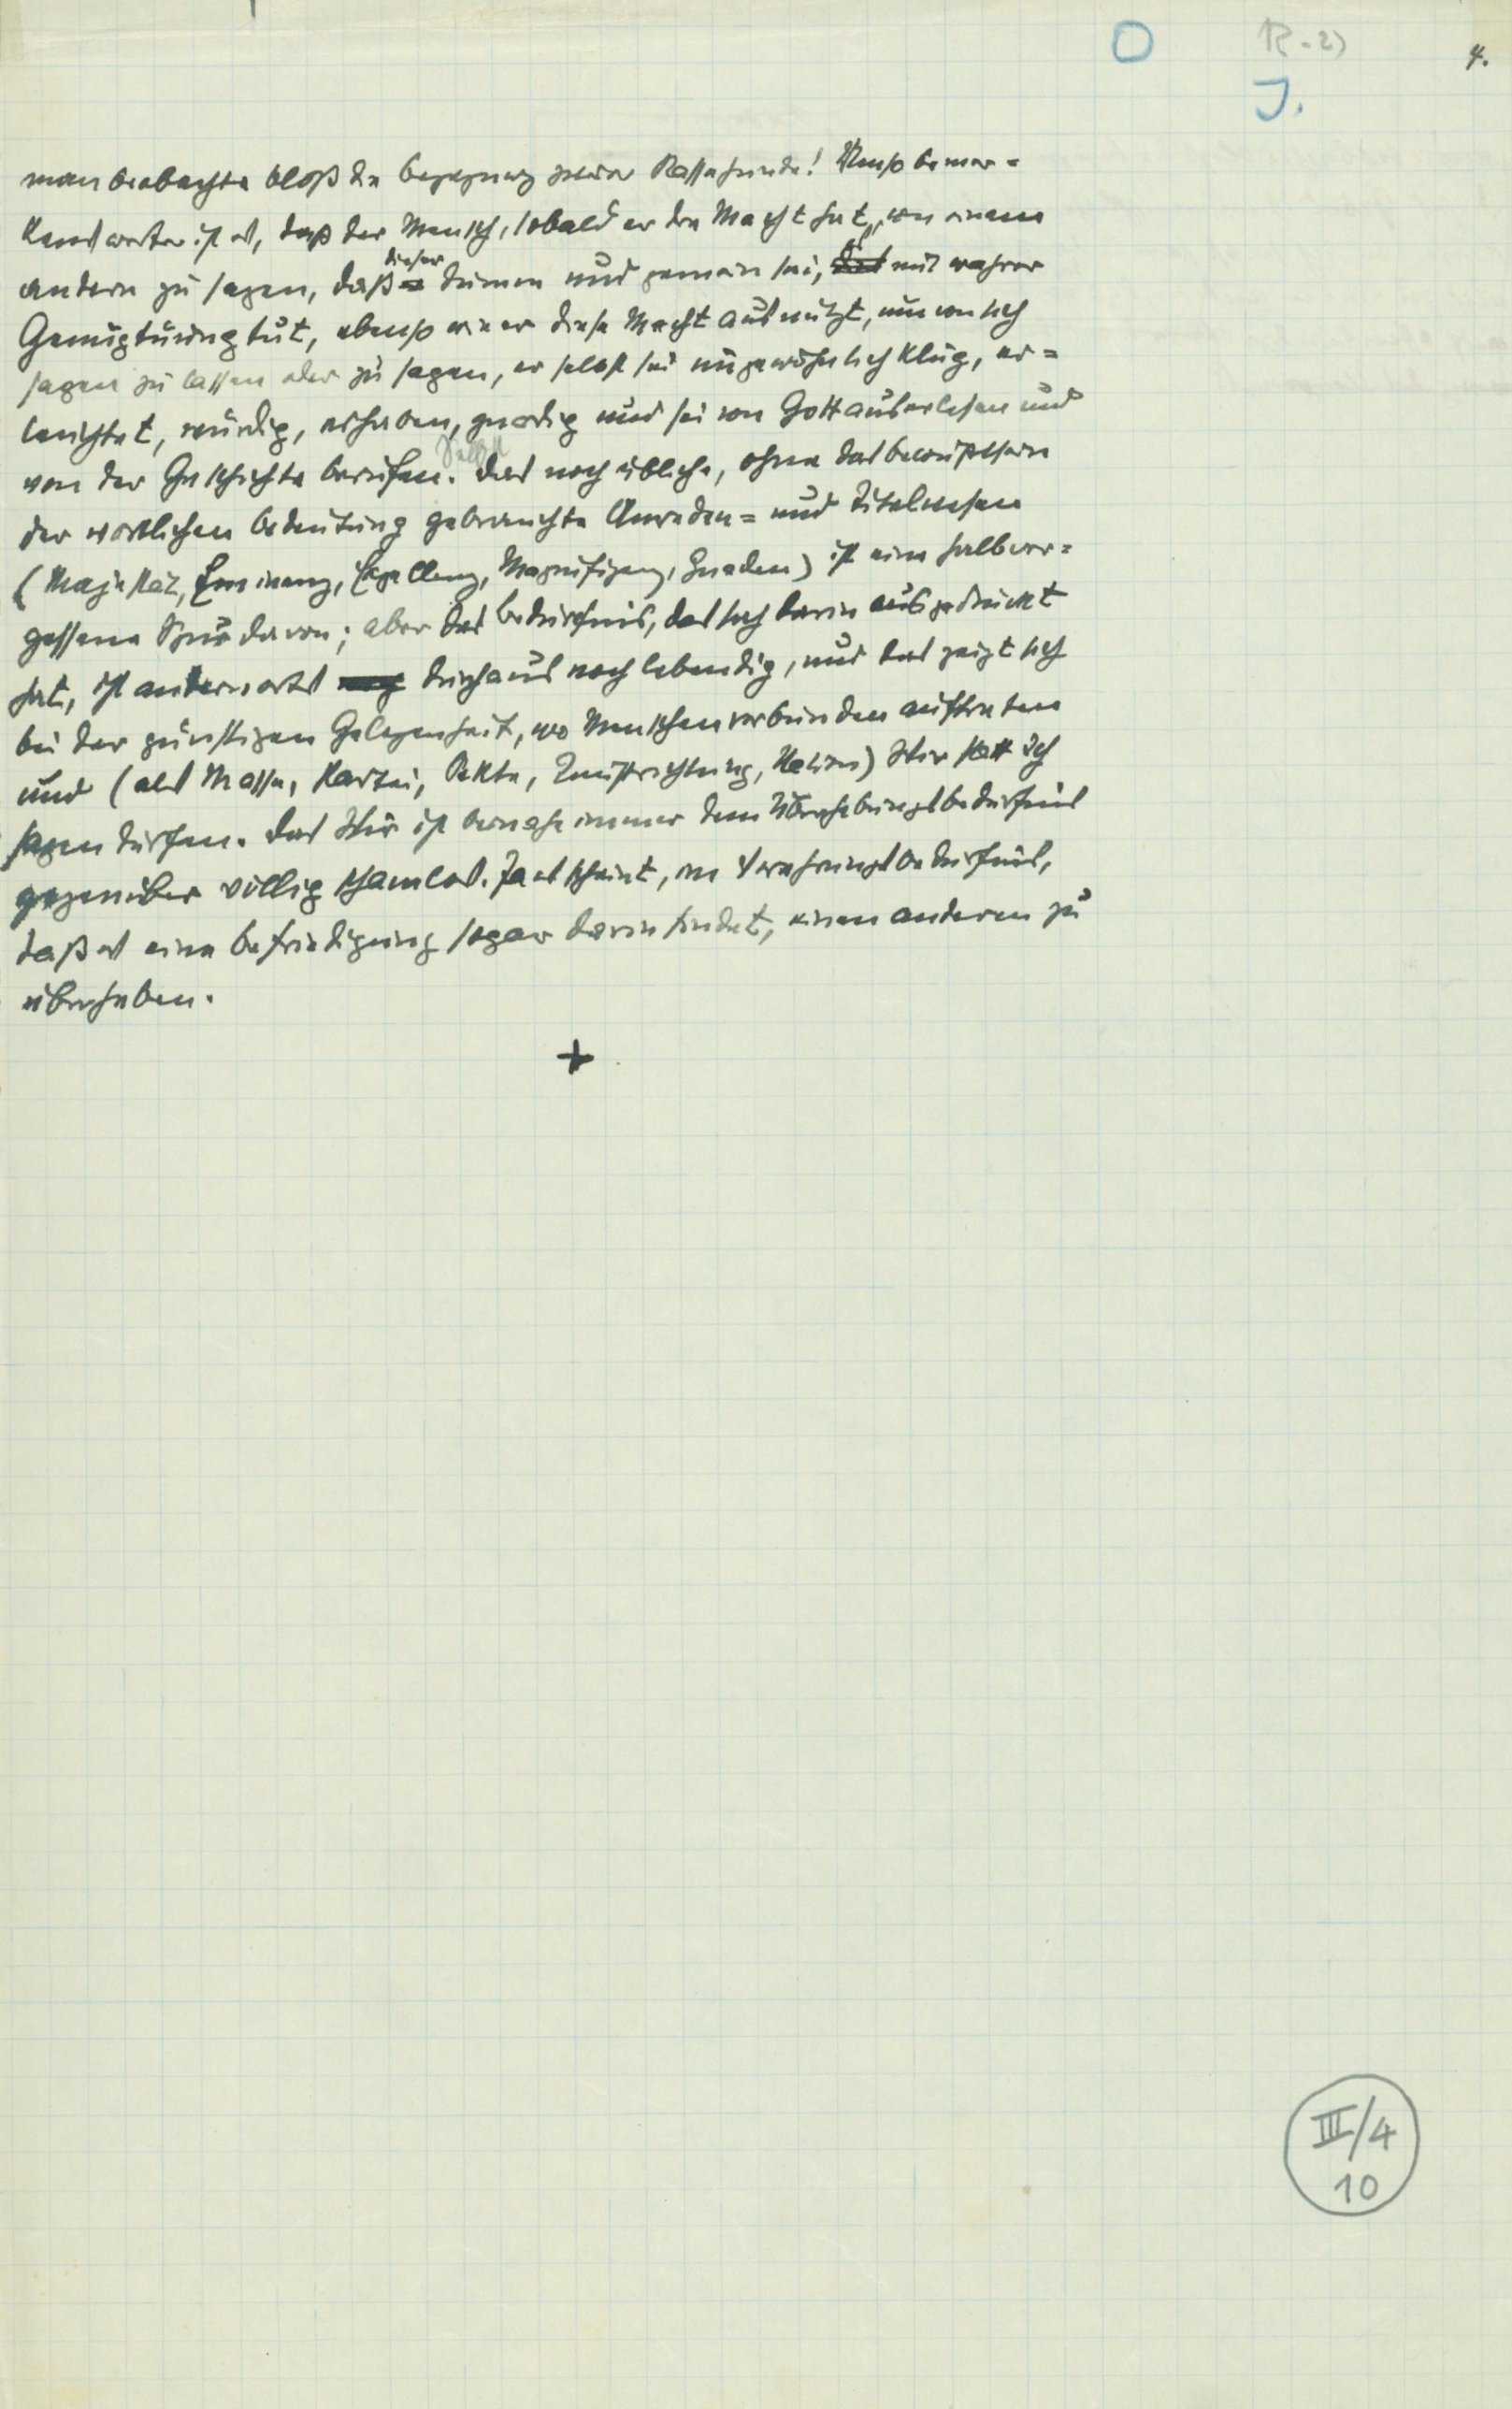 O R-2) 4.
J.
man beobachte bloß die Begegnung zweier Rassehunde! Umso bemer=
kenswerter ist es, daß der Mensch, sobald er die Macht hat, von einem
andern zu sagen, daß dieser dumm und gemein sei, das mit wahrer
Genugtuung tut, ebenso wie er diese Macht ausnützt, um von sich
sagen zu lassen oder zu sagen, er selbst sei ungewöhnlich klug, er=
leuchtet, würdig, erhaben, gnädig und sei von Gott auserlesen und
von der Geschichte berufen. Das noch übliche, ohne das Bewußtsein
der wörtlichen Bedeutung gebrauchte Anreden= und Titelwesen
(Majestät, Eminenz, Exzellenz, Magnifizenz, Gnaden) ist eine halbver=
gessene Spur davon; aber das Bedürfnis, das sich darin ausgedrückt
hat, ist andernorts durchaus noch lebendig, und das zeigt sich
bei der günstigen Gelegenheit, wo Menschen verbunden auftreten
und (als Masse, Partei, Sekte, Kunstrichtung, Nation) Wir statt Ich
sagen dürfen. Das Wir ist beinahe immer dem Überhebungsbedürfnis
gegenüber völlig schamlos. Ja es scheint, im Verehrungsbedürfnis,
daß es eine Befriedigung sogar darin findet, einen anderen zu
überheben.
+
III/4
10